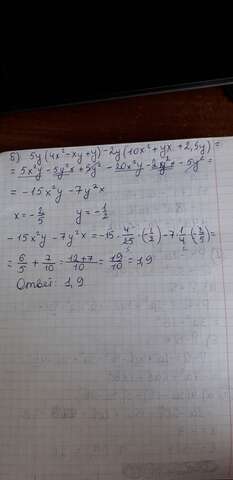 б) 5y(4x²-xy+y)-2y(10x²+yx+2,5y)=
= 5x²y-5y²x+5y²-20x²y-2y²x-5y²=
= -15x²y-7y²x
x=-2/5 y=-1/2
-15x²y-7y²x=-15·4/25·(-1/2)-7·1/4·(-2/5)=
= 6/5+7/10=12+7/10=19/10=1,9
Ответ: 1,9